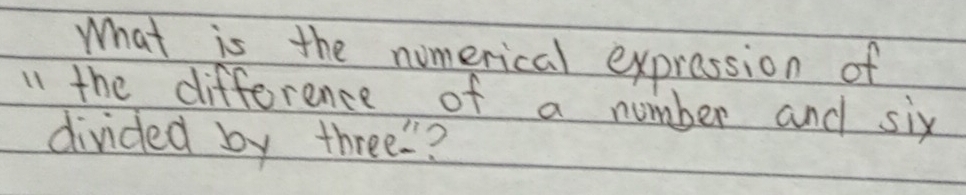 What is the numerical expression of
" the difference of a number and six
divided by three"?